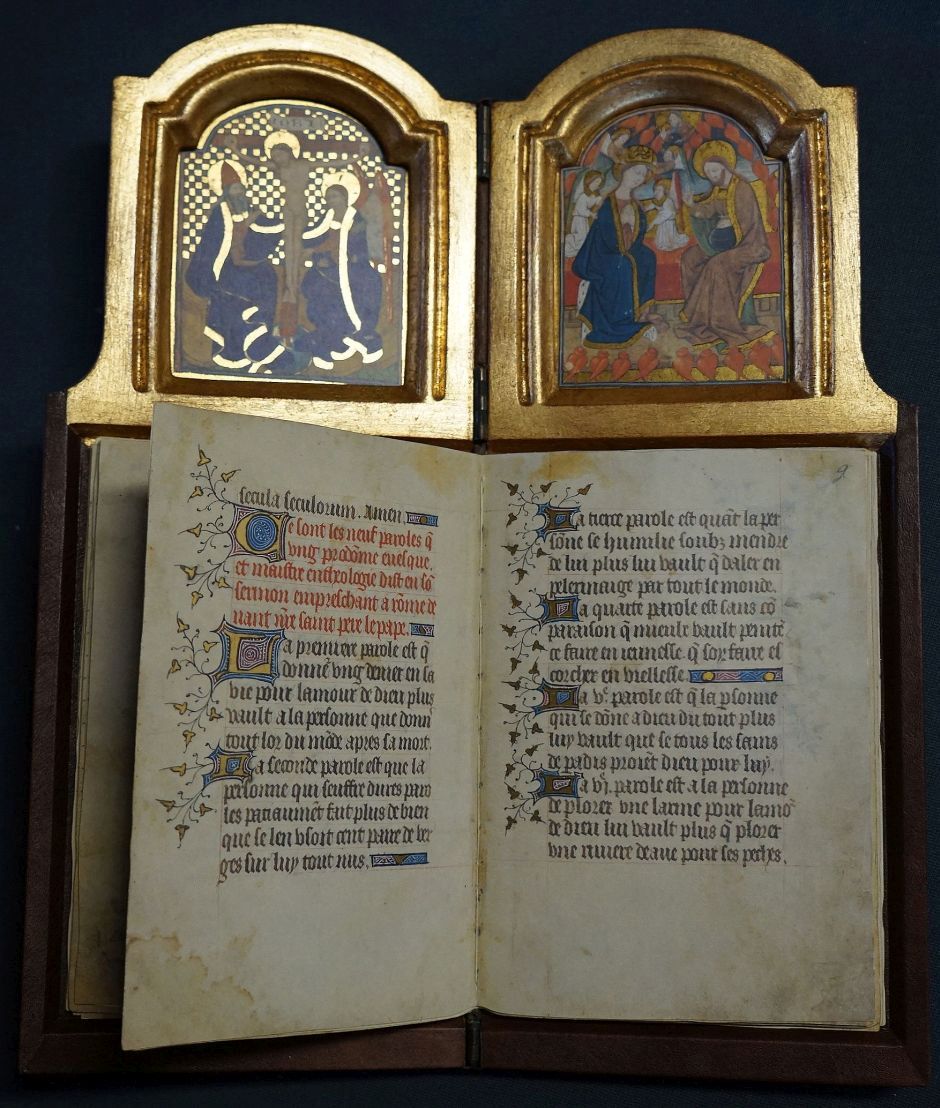 secula seculorum. Amen.
Ce sont les neuf paroles q̄
vng prodōme euesque.
et maistre en theologie dist en sō
sermon en preschant a rōme de
uant nr̄e saint pere le pape.
La premiere parole est q̄
donne vng denier en sa
vie pour lamour de dieu plus
vault a la personne que donn
tout lor du mōde apres sa mort.
La seconde parole est que la
personne qui seuffre dures paro
les paciāmēt fait plus de bien
que se len vsoit cent paire de ver
ges sur luy tout nus.
9
La tierce parole est quāt la per
sōne se humilie soubz mendre
de lui plus lui vault q̄ daler en
pelerinaige par tout le monde.
La quarte parole est sans cō
paraison q̄ mieulx vault penitē
ce faire en ieunesse. q̄ soy faire es
corcher en viellesse.
La v͛. parole est q̄ la p̄sonne
qui se dōne a dieu du tout plus
luy vault que se tous les sains
de padis proiēt dieu pour luy.
La vj. parole est a la personne
de plorer vne larme pour lamo͛
de dieu lui vault plus q̄ plorer
vne riuiere deaue pour ses peches.